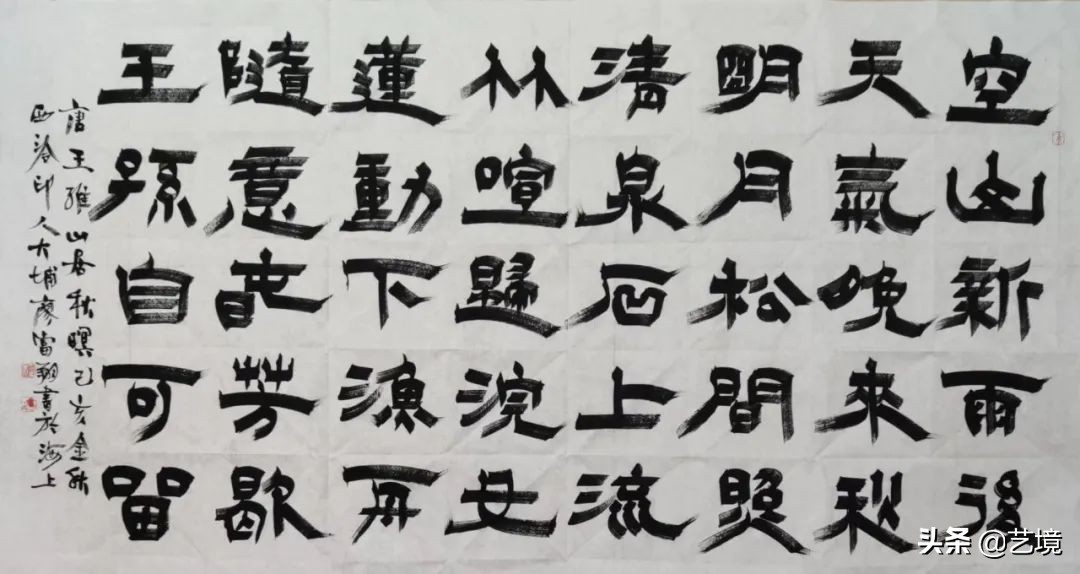 空山新雨後
天氣晚來秋
明月松間照
清泉石上流
林喧歸浣女
蓮動下漁舟
隨意春芳歇
王孫自可留
唐王維山居秋暝己亥金秋
西泠印人大埔廖富翔書於海上
头条 @艺境